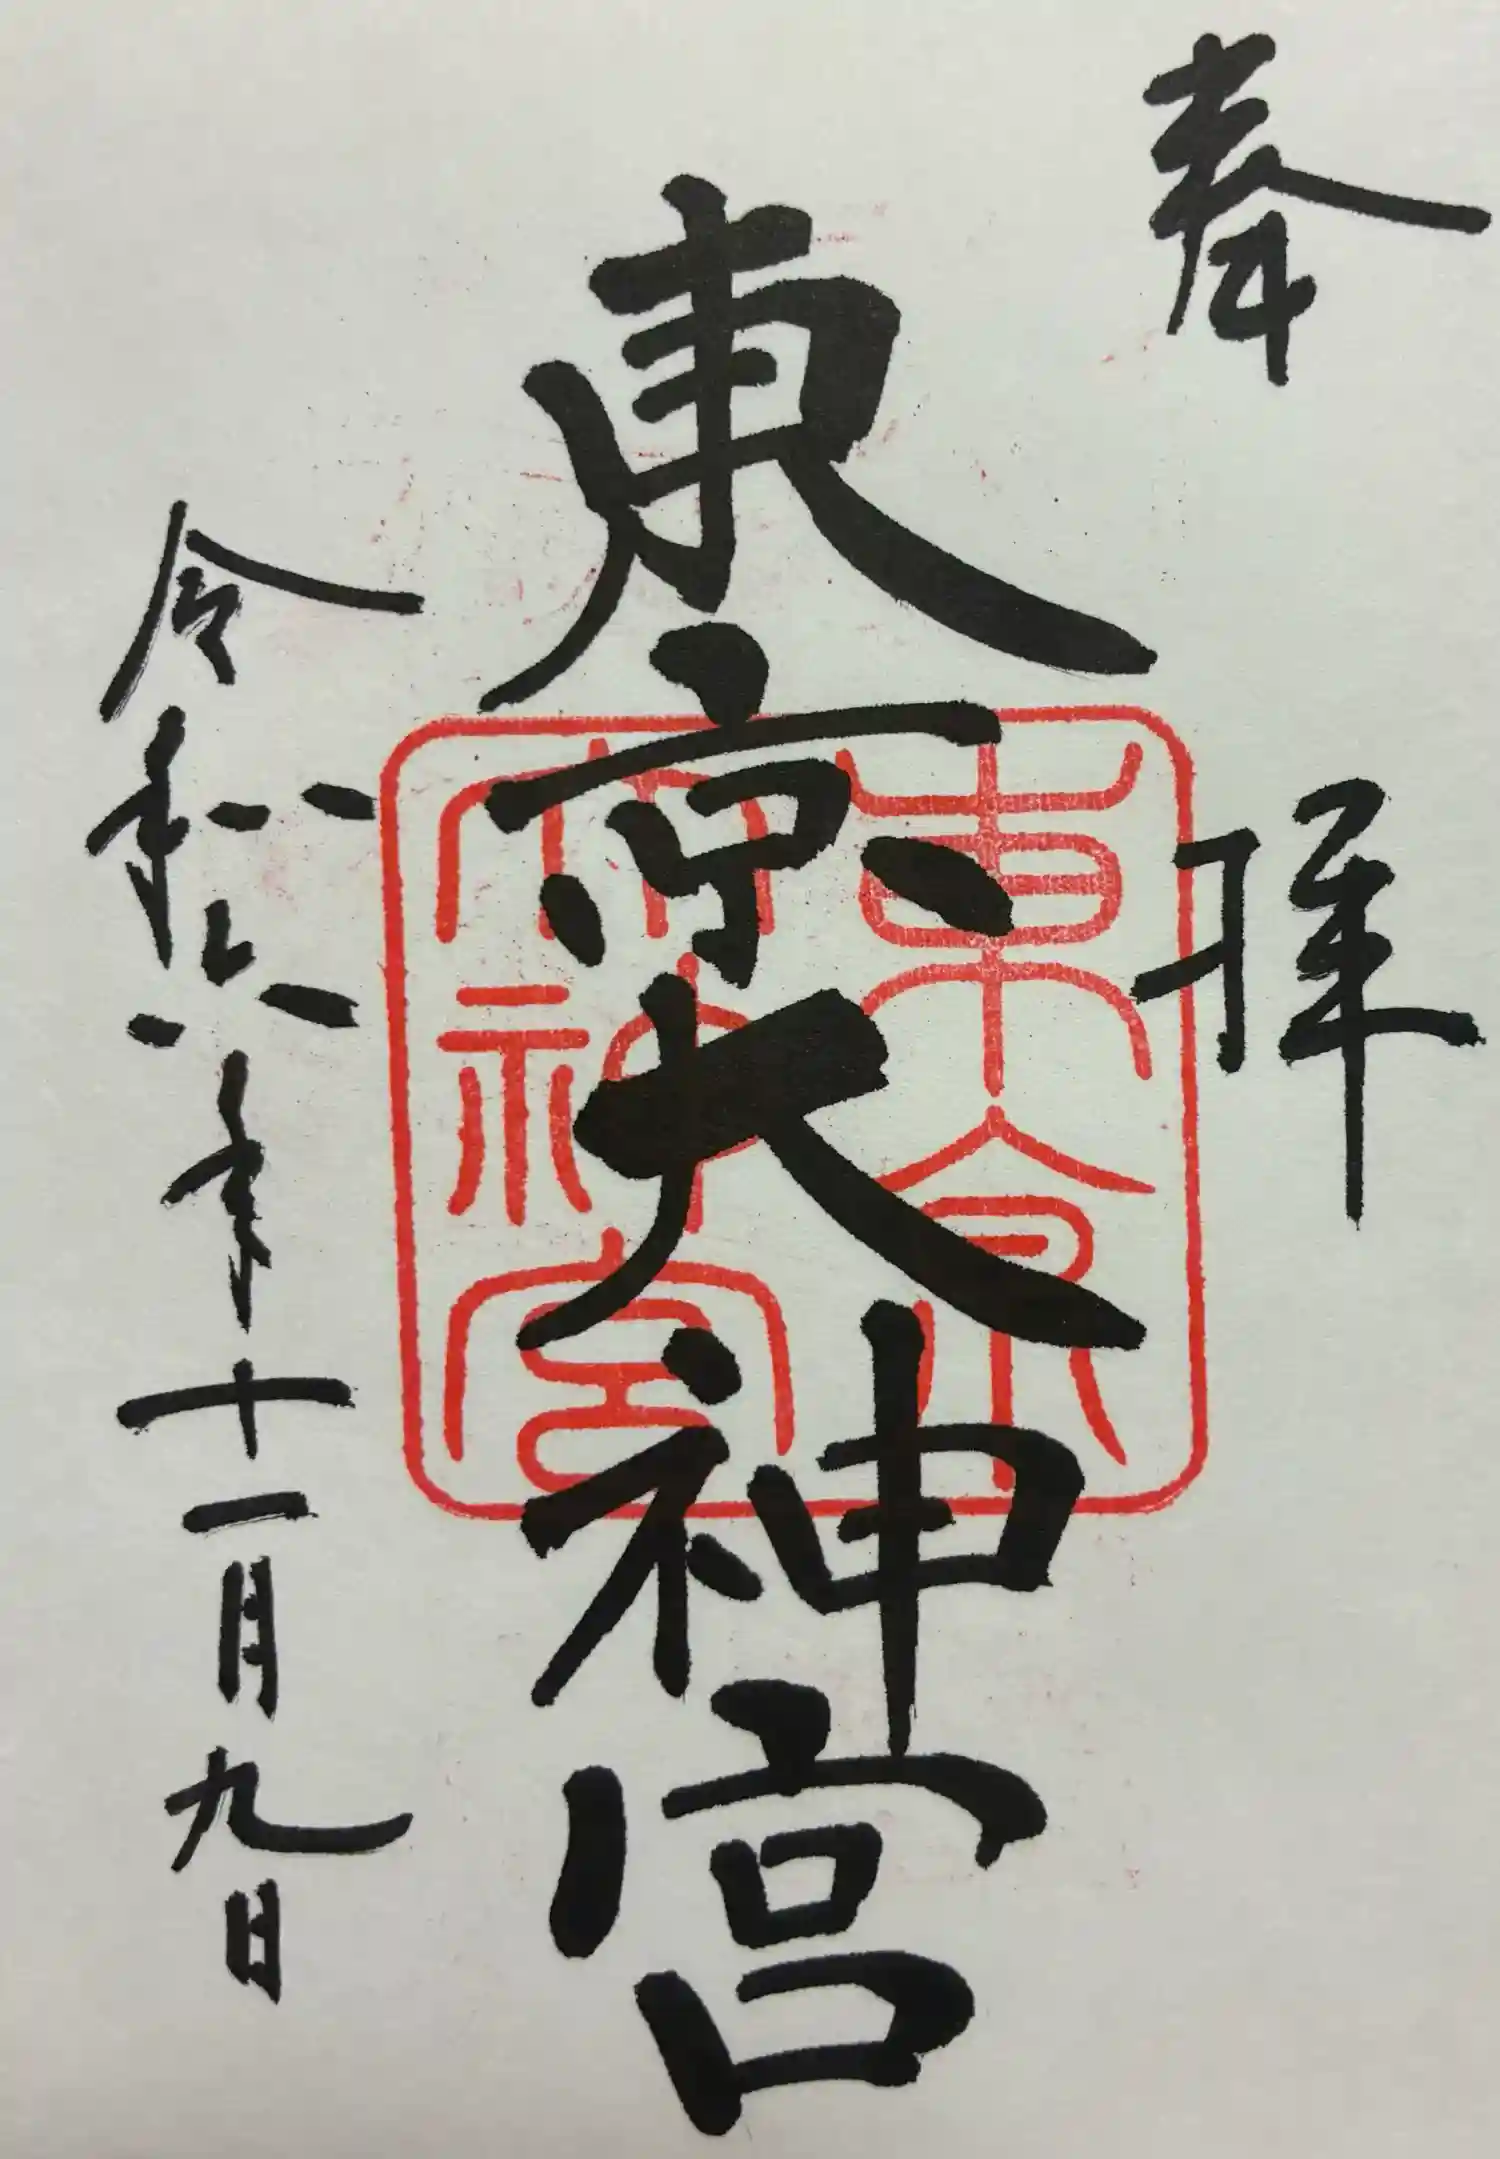 奉拝
東京大神宮
東京
大神宮
令和六年十一月九日